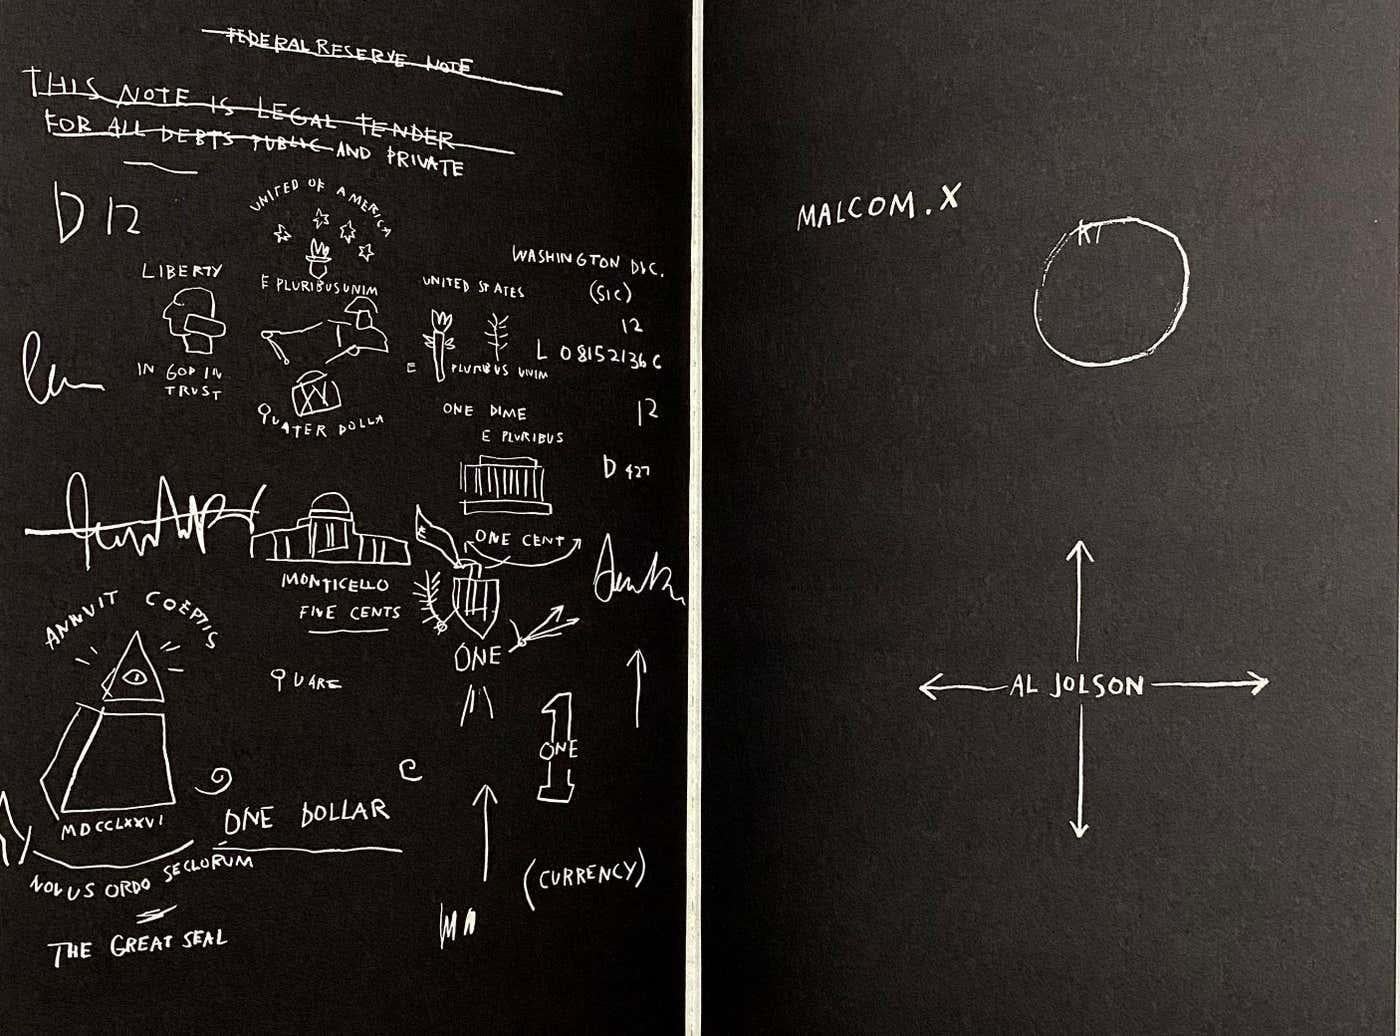 FEDERAL RESERVE NOTE
THIS NOTE IS LEGAL TENDER
FOR ALL DEBTS PUBLIC AND PRIVATE
D 12
UNITED OF AMERICA
E PLURIBUS UNIM
LIBERTY
IN GOD IN
TRUST
QUATER DOLLA
UNITED STATES
E PLURIBUS UNIM
WASHINGTON D.C.
(SIC)
12
L 08152136 C
12
ONE DIME
E PLURIBUS
D 427
ONE CENT
MONTICELLO
FIVE CENTS
ONE
QUARE
ANNVIT COEPTIS
MDCCLXXVI
NOVUS ORDO SECLORUM
THE GREAT SEAL
ONE DOLLAR
C
1
ONE
(CURRENCY)
MALCOM.X
AL JOLSON